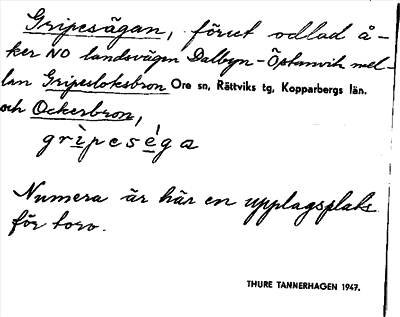 Gripesägan, förut odlad å-
ker NO landsvägen Dalbyn-Östanvik mel-
lan Gripesloksbron Ore sn, Rättviks tg, Kopparbergs län.
och Ockerbron,
grìpcsèga
Numera är här en upplagsplaks
för torv.
THURE TANNERHAGEN 1947.